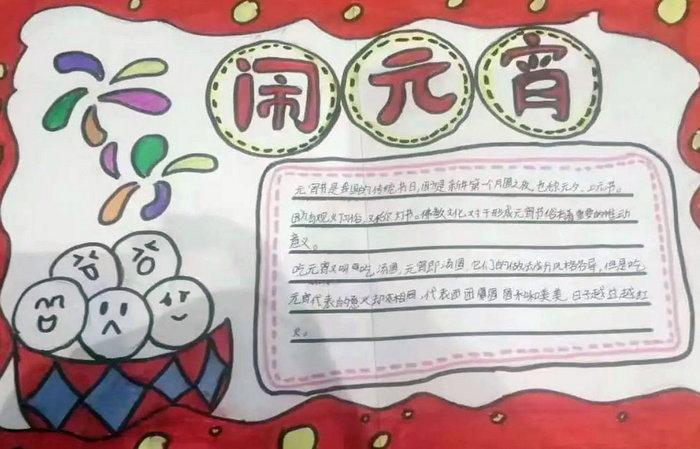 闹元宵
元宵节是我国的传统节日,因为是新年第一个月圆之夜,也称元夕、上元节。
因为有观灯习俗,又称灯节。佛教文化对于形成元宵节俗有着重要的推动
意义。
吃元宵又叫吃汤圆,元宵即汤圆,它们的做法成分风格各异,但是吃
元宵代表的意义却相同。代表团团圆圆和和美美,日子越过越红
火。